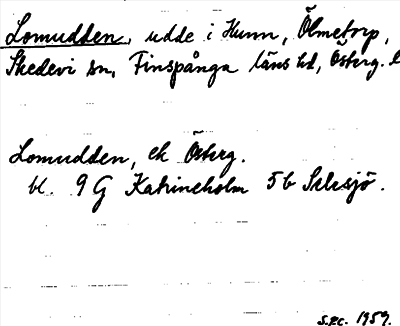 Lomudden, udde i Hunn, Ölmetorp,
Skedevi sn, Finspånga läns hd, Österg. l
Lomudden, ek Österg.
bl. 9 G Katrineholm 5b
1959.